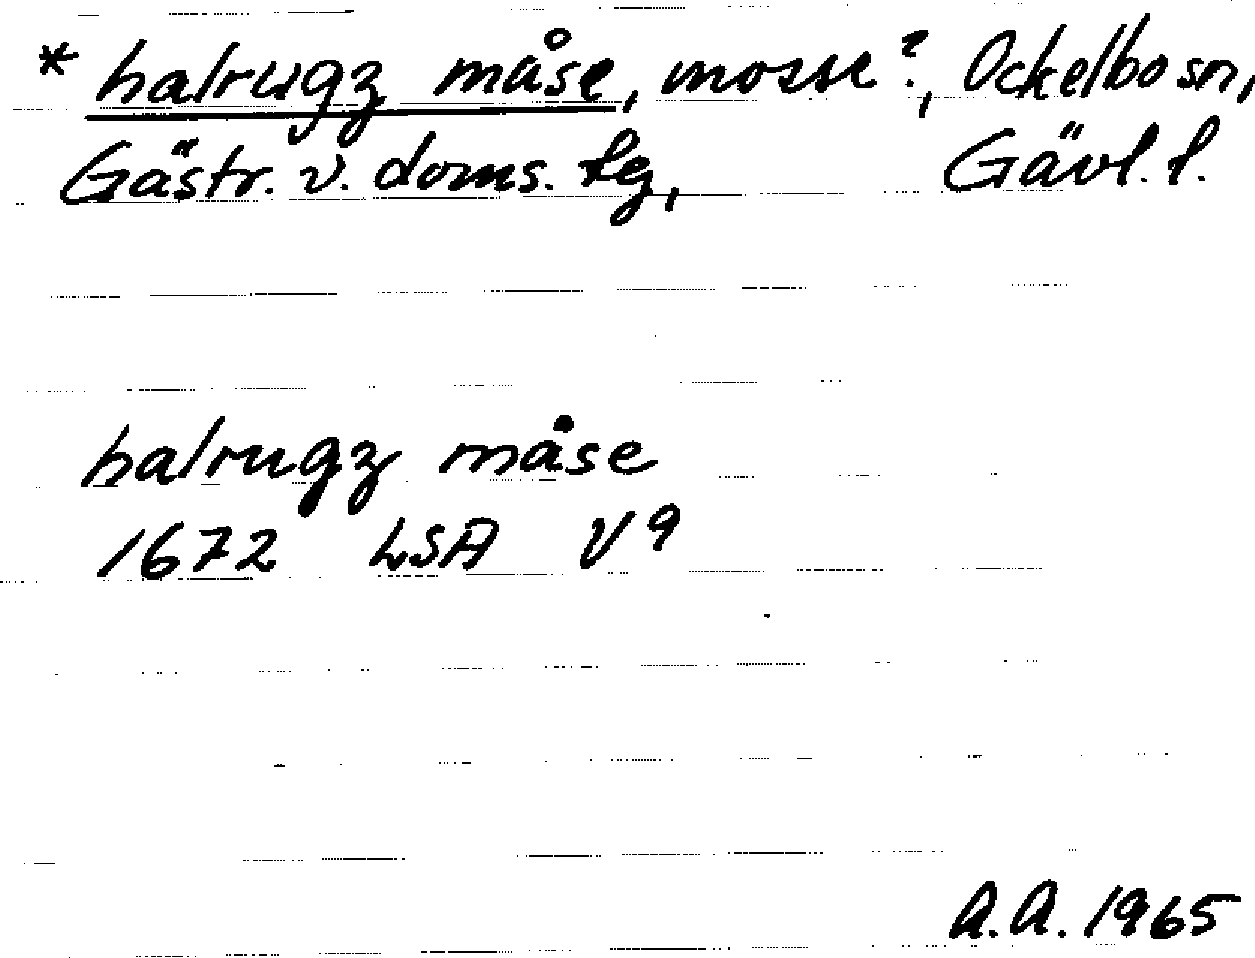 * halrugz måse, mosse?, Ockelbo sn,
Gästr. v. doms. tg, Gävl. l.
halrugz måse
1672 LSA V 9
A.A. 1965